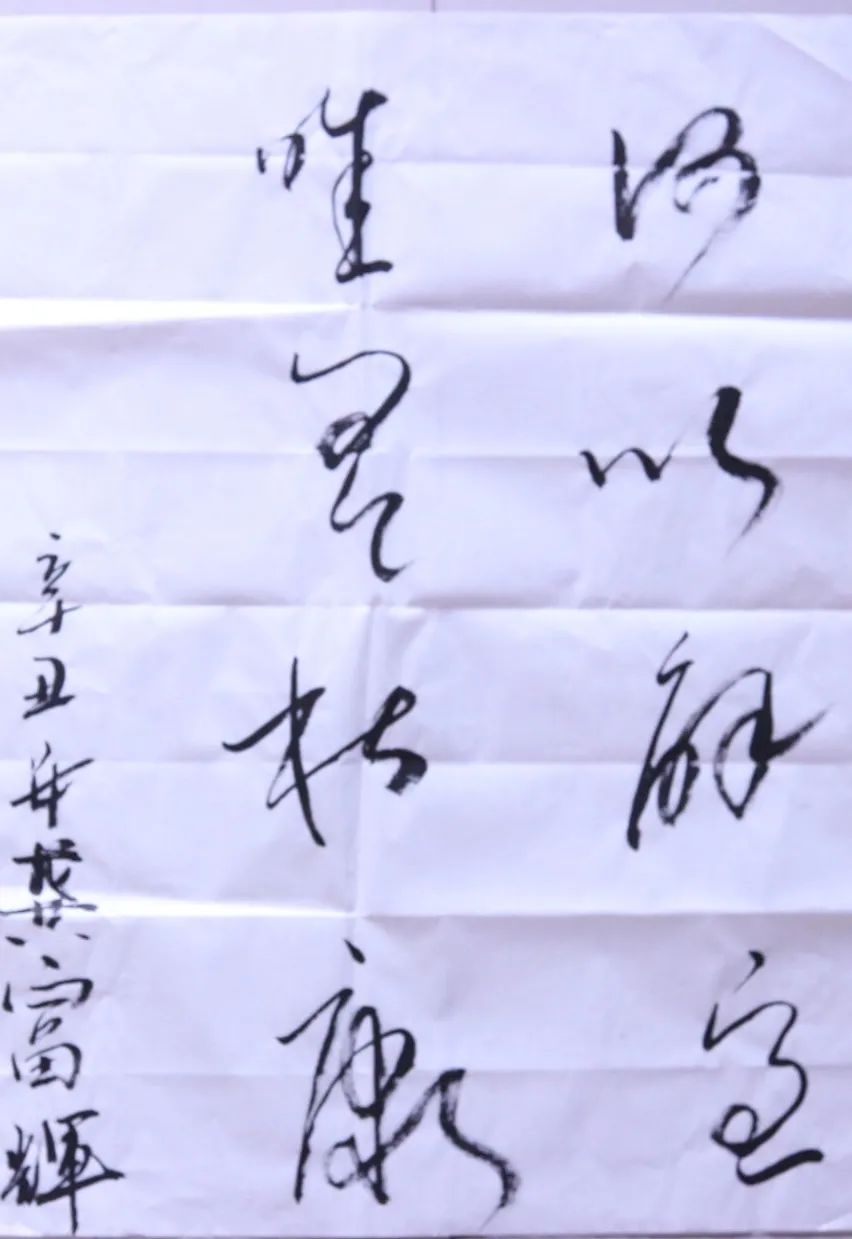 何以解憂
唯有杜康
辛丑年龔富輝